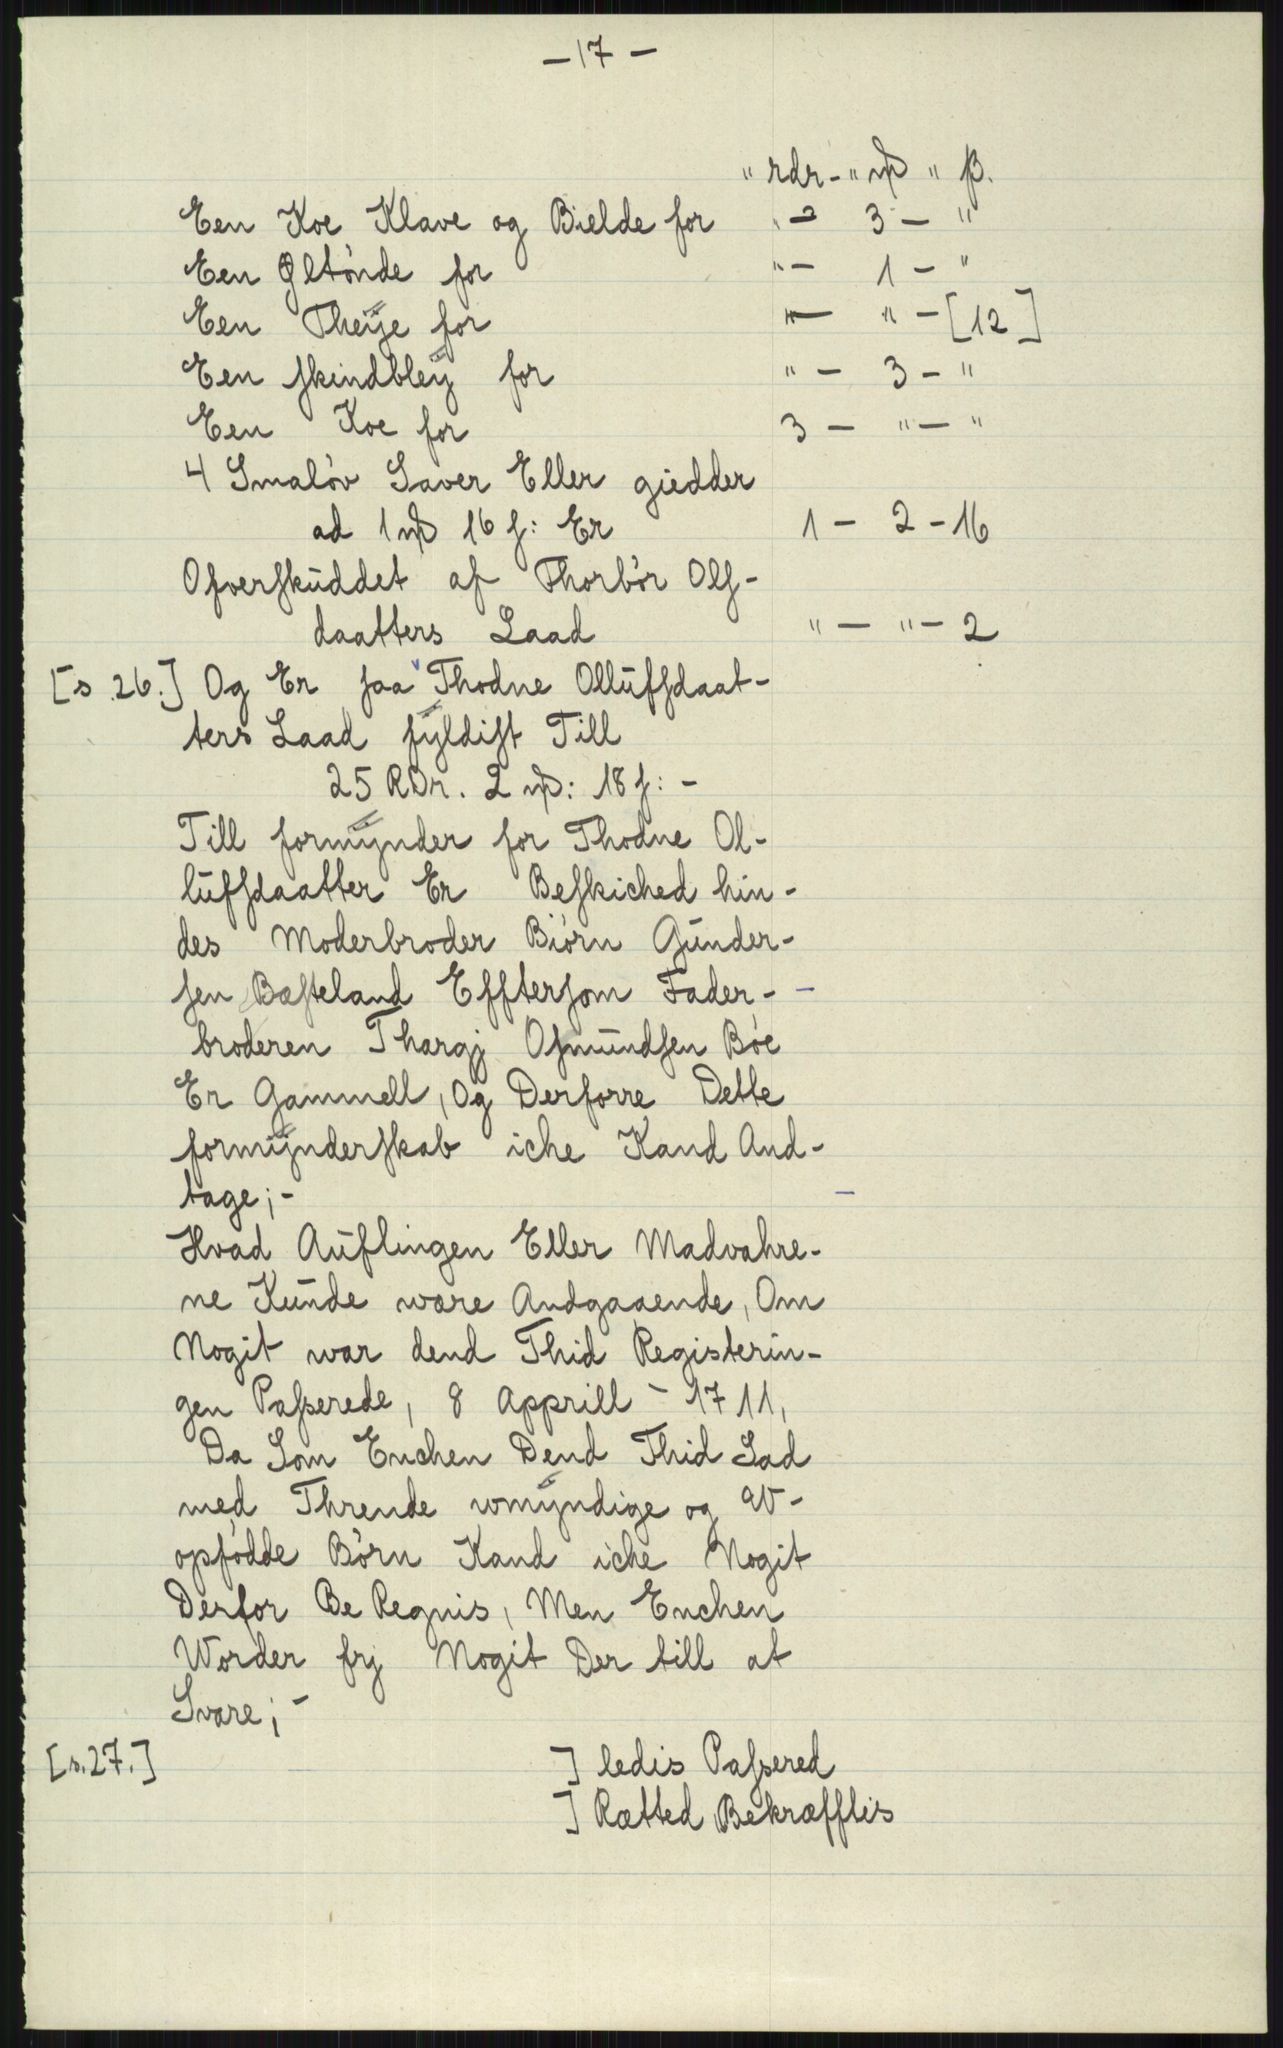 — 17 —
" rdr - " mk " ß.
Een Koe Klave og Bielde for " - 3 - "
Een Øltónde for " - 1 - "
Een Theÿe for " — " - [12]
Een skindbleÿ for " - 3 - "
Een Koe for 3 - " - "
4 Smalóv Saver Eller giedder
ad 1 mk 16 s: Er 1 - 2 - 16
Ofverskuddet af Thorbór Ols-
daatters Laad " — " - 2
[s. 26.] Og Er saa Thodne Ollufsdaat-
ters Laad fÿldist Till
25 RDr. 2 mk: 18 s: -
Till formÿnder for Thodne Ol-
lufsdaatter Er Beskiched hin-
des Moderbroder Biórn Gunder-
sen Bæsteland Efftersom Fader-
broderen Thargj Osmundsen Bóe
Er Gammell, Og Derforre Dette
formÿnderskab iche Kand And-
tage; -
Hvad Auflingen Eller Madvahre-
ne Kunde være Andgaaende, Om
Nogit war dend Thid Registerin-
gen Passerede, 8 Apprill - 1711,
Da Som Enchen Dend Thid Sad
med Thrende wmÿndige og W-
opfódde Bórn Kand iche Nogit
Derfor Be Regnis, Men Enchen
Worder frj Nogit Der till at
Svare; -
[s. 27.] ] ledis Passered
] Rætted Bekræfftis